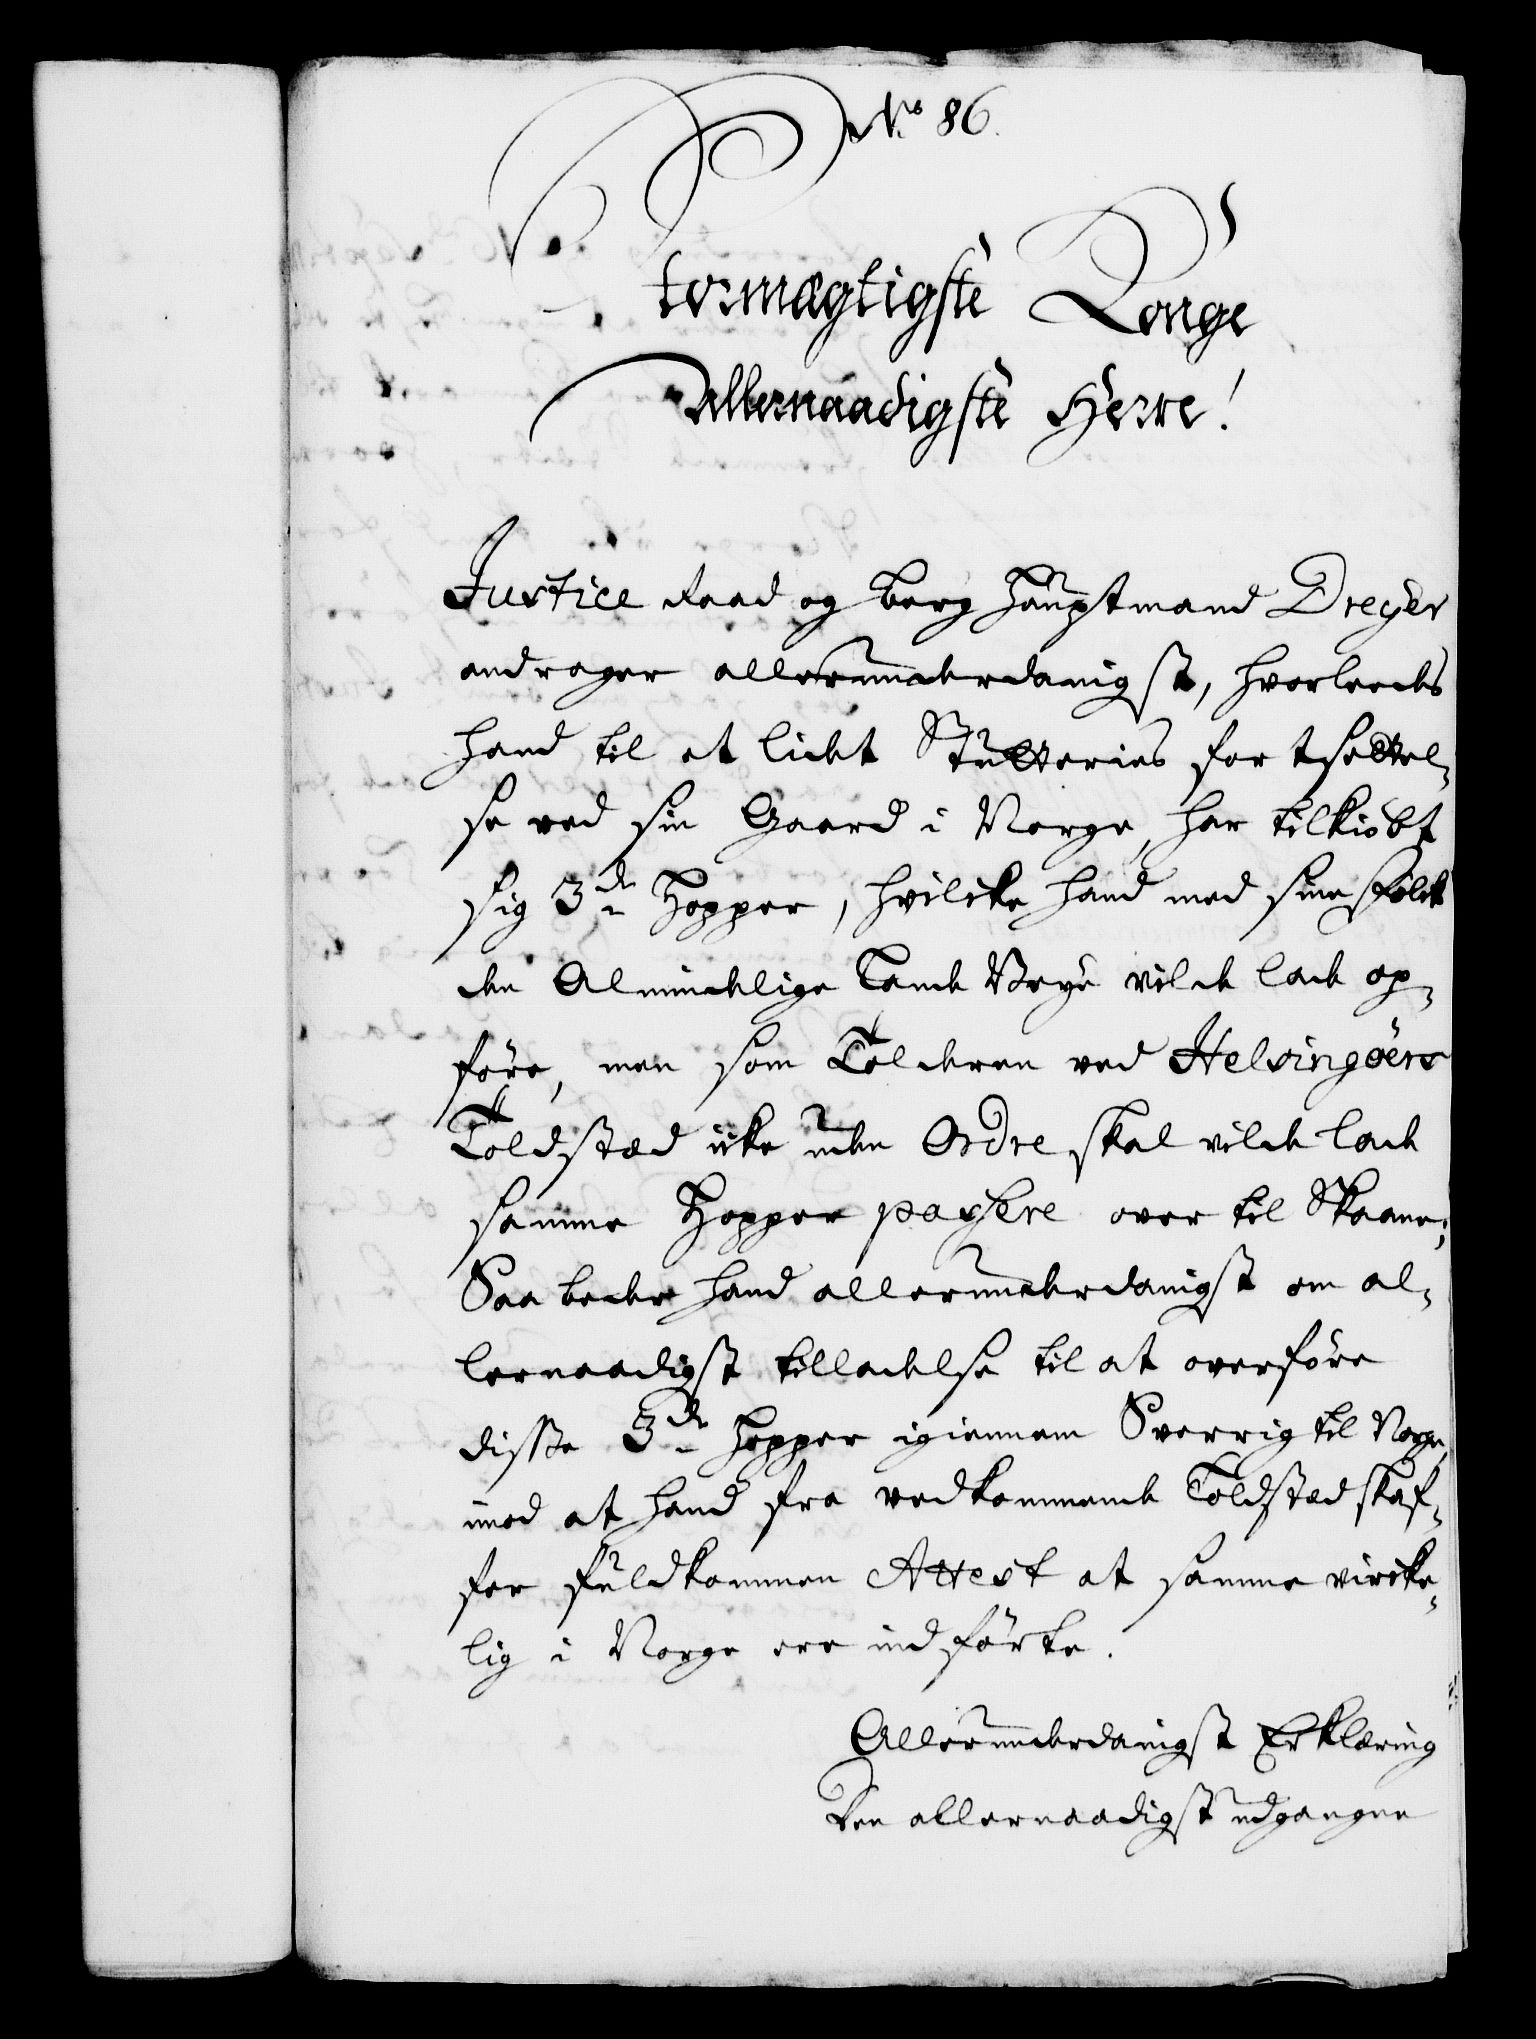 No 86.
Stormægtigste Konge
Allernaadigste Herre!
Justice Raad og Berg Hauptmand Dreyer
andrager allerunderdanigst, hvorledes
hand til et lidet Stutteries fortsettel-
se ved sin Gaard i Norge, har tilkiøbt
sig 3de Hopper, hvilcke hand med sine folck
den Almindelige Lande Veye vilde lade op-
føre, men som Tolderen ved Helsingøers
Toldsted icke uden Ordre skal vilde lade
samme Hopper passere over til Skaane;
Saa beder hand allerunderdanigst om al-
lernaadigst tilladelse til at overføre
disse 3de Hopper igiennem Sverrig til Norge,
imod at hand fra vedkommende Toldsted skaf-
fer fuldkommen Attest at samme vircke-
lig i Norge ere indførte.
Allerunderdanigst Erklæring
Den allernaadigst udgangne